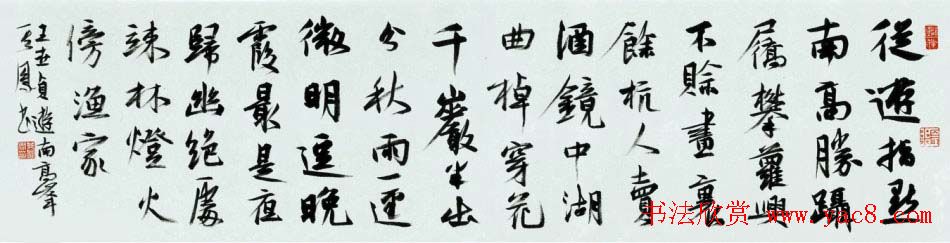 從遊指點
南高勝躡
屩攀蘿興
不賒畫裏
餘杭人賣
酒鏡中湖
曲棹穿花
千巖半出
分秋雨一逕
微明逗晚
霞最是夜
歸幽絕處
疎林燈火
傍漁家
王世貞遊南高峯
鳳書
书法欣赏 www.yac8.com